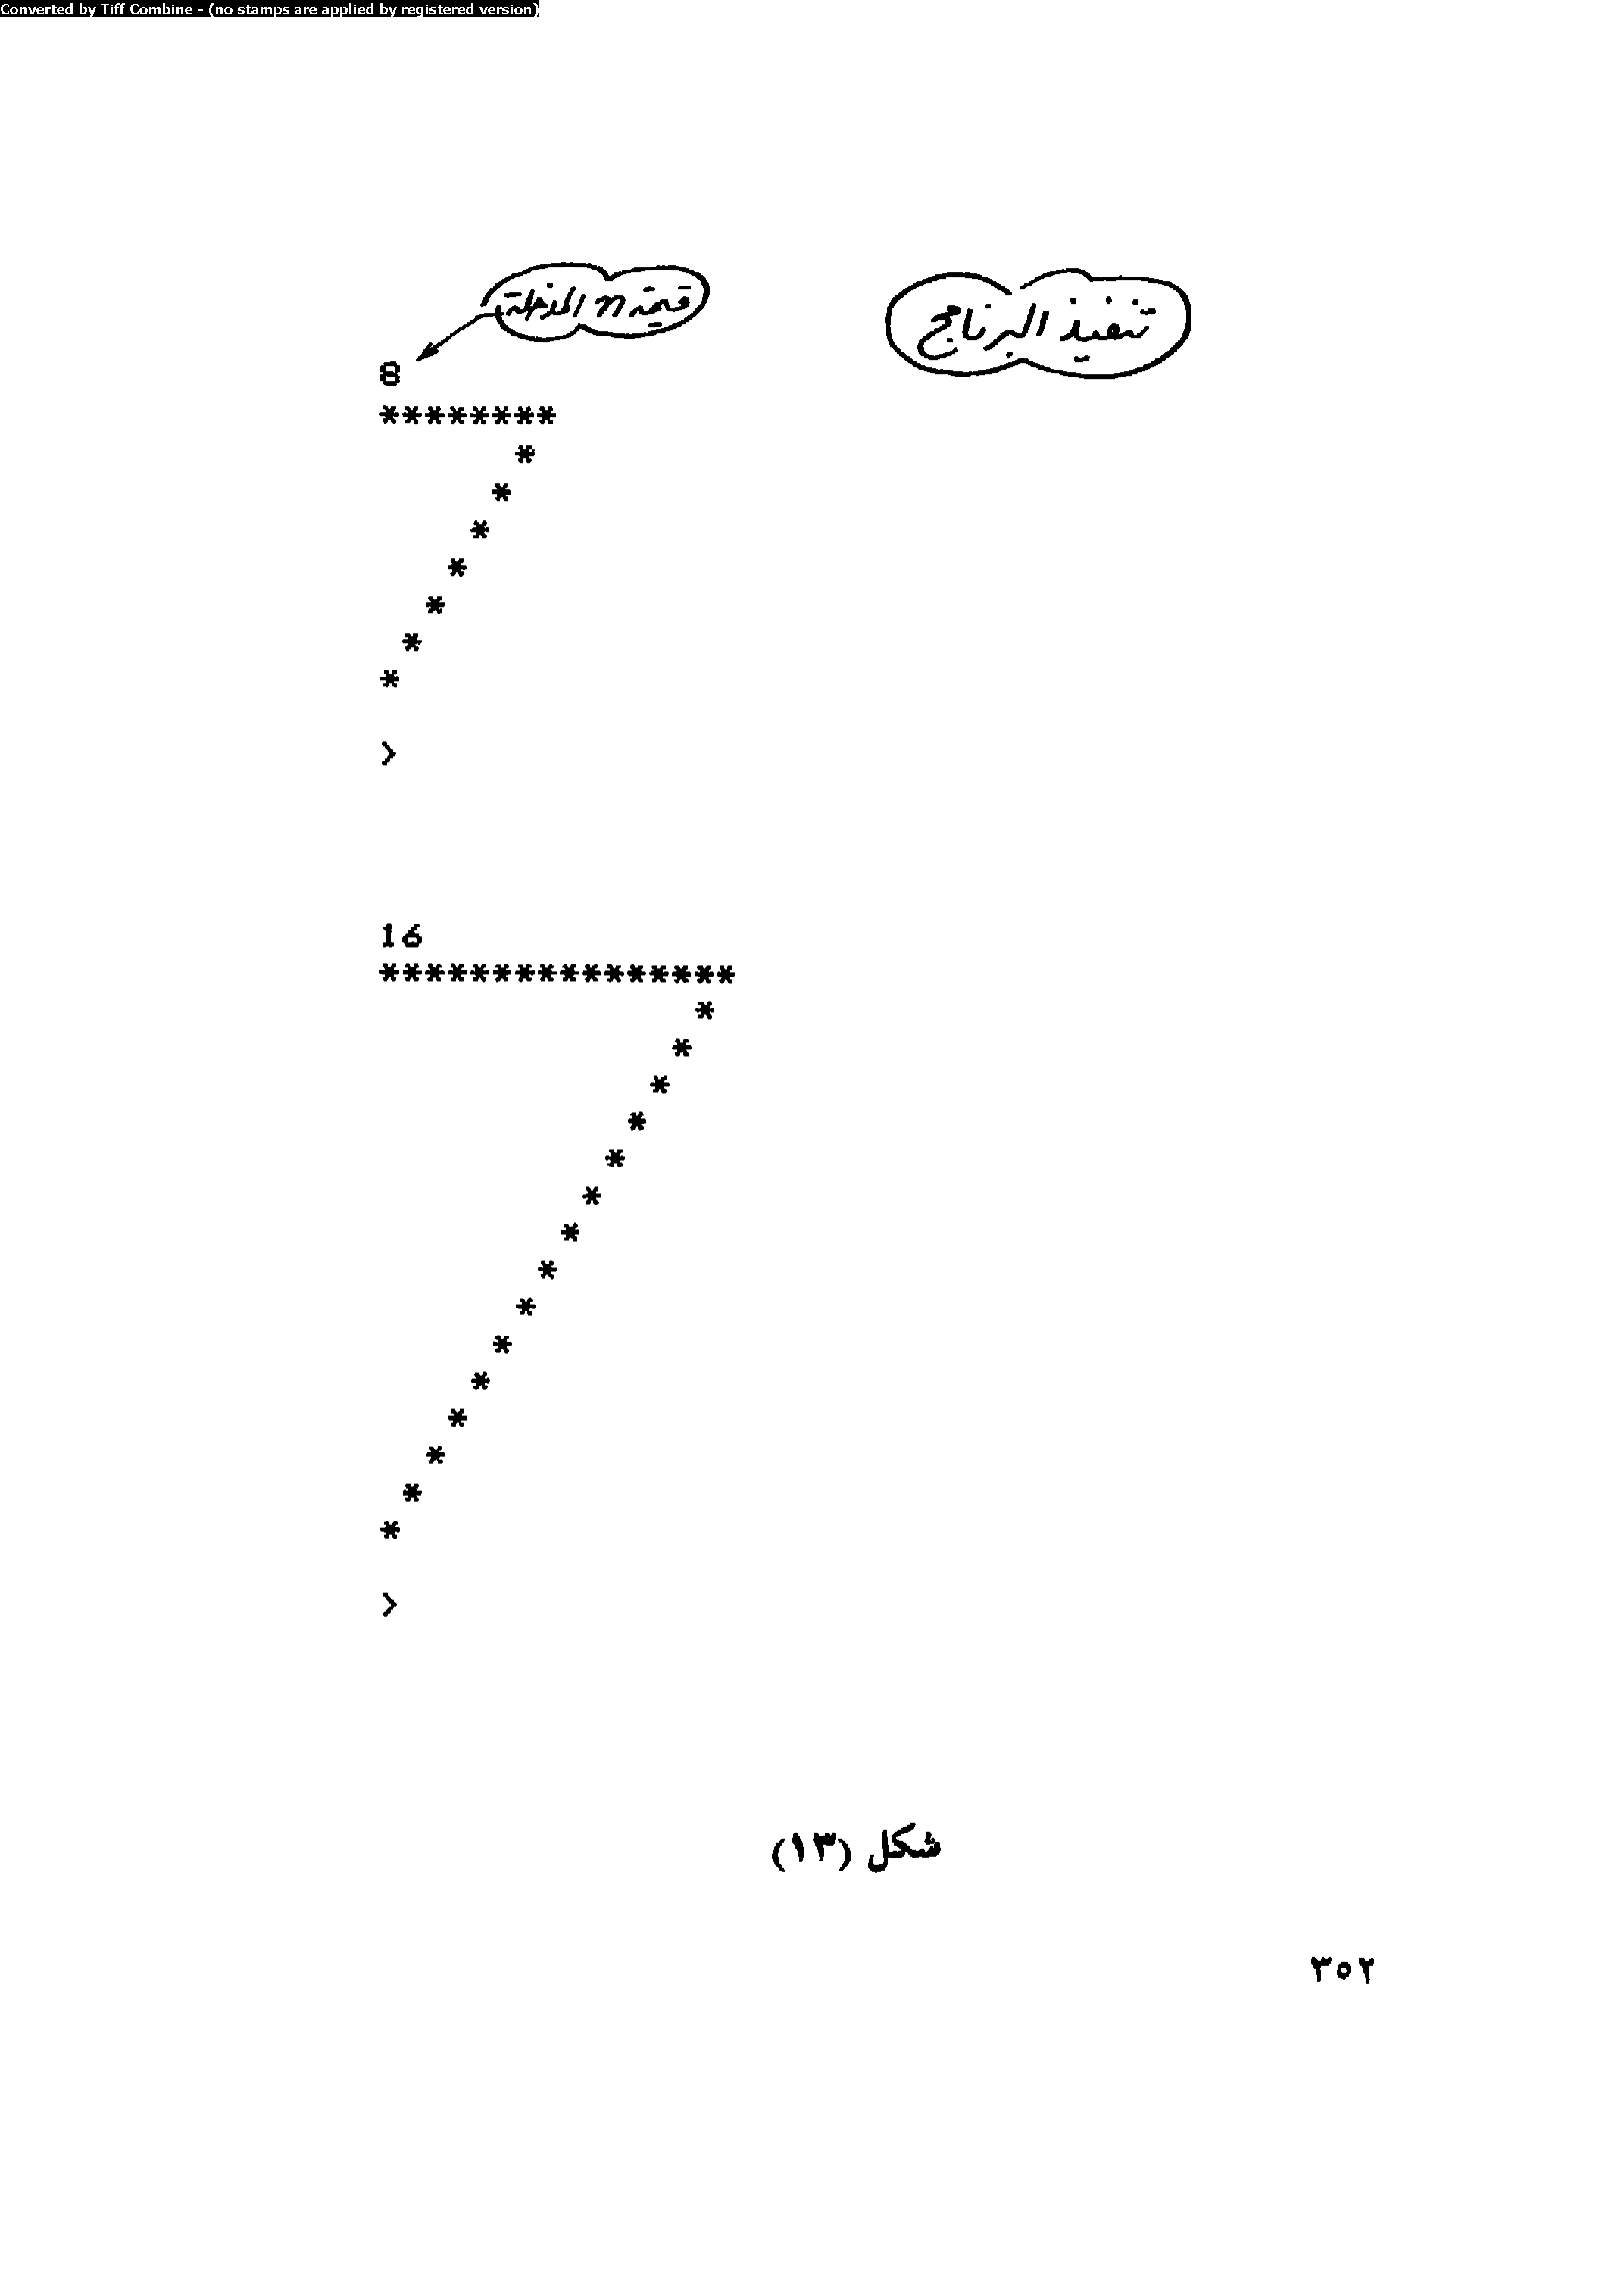 Converted by Tiff Combine - (no stamps are applied by registered version)
تنفيذ البرنامج
قيمة n المدخلة
8
********
      *
     *
    *
   *
  *
 *
*
>
16
****************
              *
             *
            *
           *
          *
         *
        *
       *
      *
     *
    *
   *
  *
 *
*
>
شكل (١٣)
٣٥٢